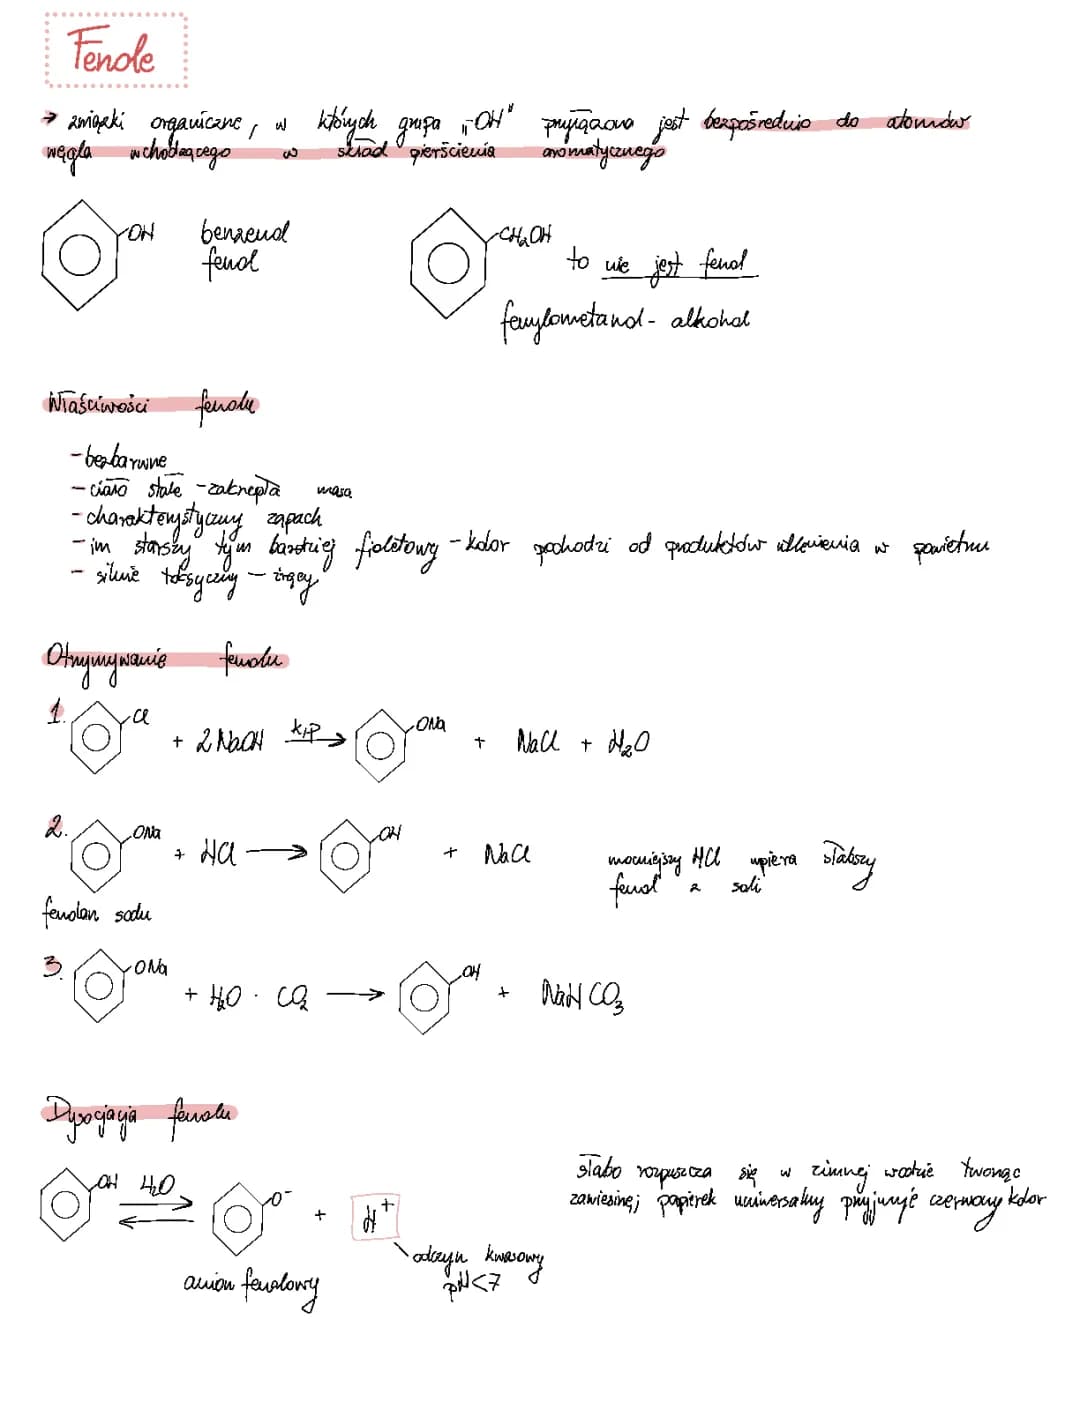 Fenole
→ związki organiczne, w których grupa „-OH" przyłączona jest bezpośrednio do atomów
węgla wchodzącego w skład pierścienia aromatycznego
OH benzenol
fenol
CH₂OH
to nie jest fenol
fenylometanol - alkohol
Właściwości fenolu
- bezbarwne
- ciało stałe - zakrzepła masa
- charakterystyczny zapach
- im starszy tym bardziej fioletowy - kolor pochodzi od produktów utlenienia w powietrzu
- silnie toksyczny - żrący
Otrzymywanie fenolu
1. Cl + 2 NaOH k,p → ONa + NaCl + H₂O
2. ONa + HCl → OH + NaCl
mocniejszy HCl wpiera słabszy
fenol z soli
fenolan sodu
3. ONa + H₂O · CO₂ → OH + NaHCO₃
Dysocjacja fenolu
OH H₂O ⇄ O⁻ + H⁺
słabo rozpuszcza się w zimnej wodzie tworząc
zawiesinę; papierek uniwersalny przyjmuje czerwony kolor
odczyn kwasowy
pH<7
anion fenolowy